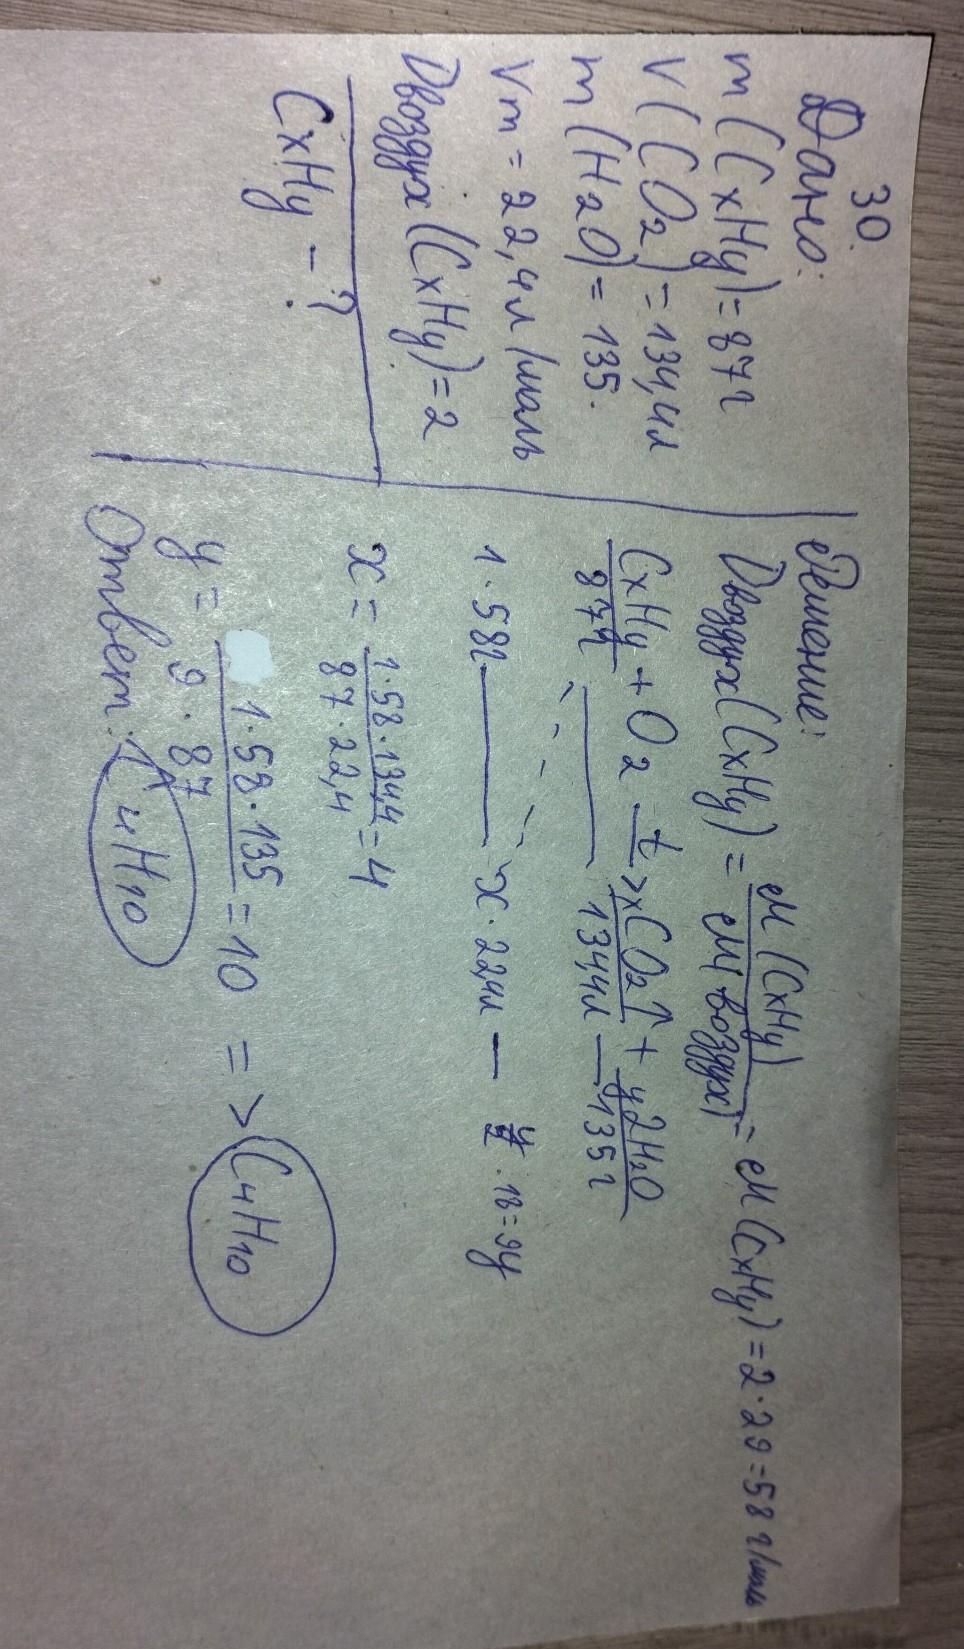 30.
Дано:
m(CxHy) = 87г
V(CO2) = 134,4л
m(H2O) = 135.
Vm = 22,4л/моль
Dвоздух(CxHy) = 2
CxHy - ?
Решение:
Dвоздух(CxHy) = M(CxHy) / M(воздух) = M(CxHy) = 2·29 = 58г/моль
CxHy + O2 t→ xCO2↑ + y2H2O
87г — 134,4л — 135г
1·58г — x·22,4л — y/2·18=9y
x = 1·58·134,4 / 87·22,4 = 4
y = 1·58·135 / 9·87 = 10 => C4H10
Ответ: C4H10